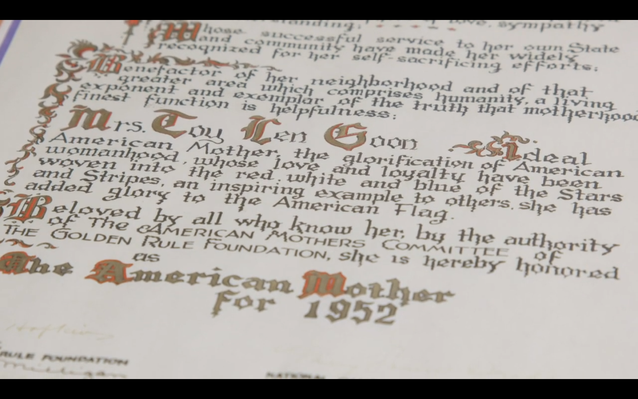 understanding, love, sympathy
Whose successful service to her own State
and community have made her widely
recognized for her self-sacrificing efforts;
Benefactor of her neighborhood and of that
greater area which comprises humanity, a living
exponent and exemplar of the truth that motherhood
finest function is helpfulness;
Mrs. Toy Len Goon Ideal
American Mother, the glorification of American
womanhood, whose love and loyalty have been
woven into the red, white and blue of the Stars
and Stripes, an inspiring example to others, she has
added glory to the American Flag.
Beloved by all who know her, by the authority
of The American Mothers Committee of
The Golden Rule Foundation, she is hereby honored
as
The American Mother
for 1952
RULE FOUNDATION
NATIONAL